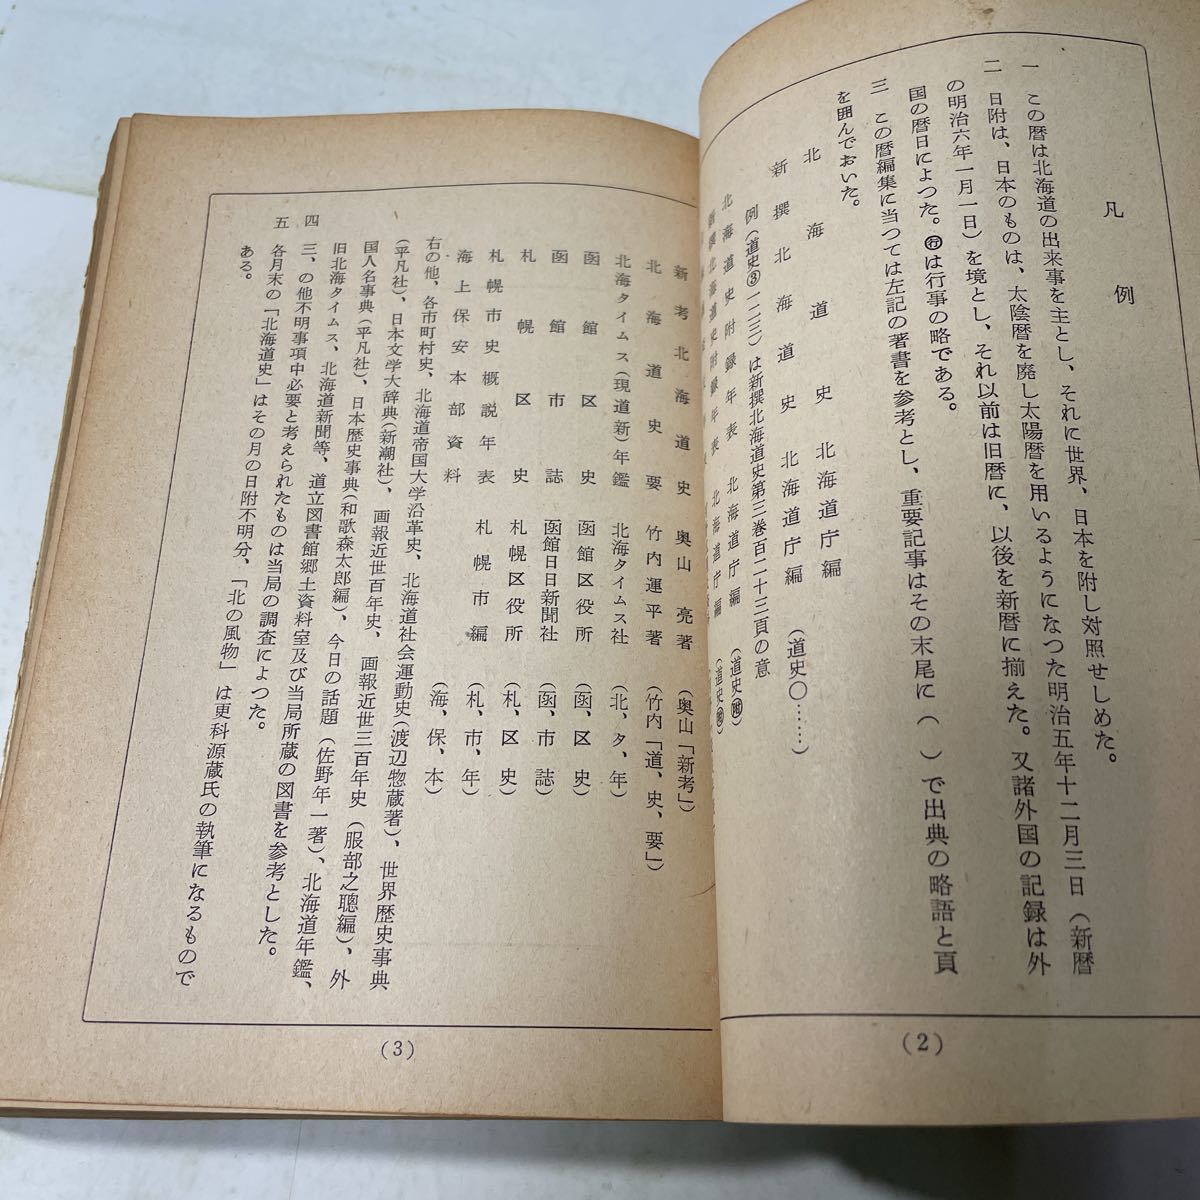 凡例
一 この暦は北海道の出来事を主とし、それに世界、日本を附し対照せしめた。
二 日附は、日本のものは、太陰暦を廃し太陽暦を用いるようになつた明治五年十二月三日(新暦
の明治六年一月一日)を境とし、それ以前は旧暦に、以後を新暦に揃えた。又諸外国の記録は外
国の暦日によつた。㊡は行事の略である。
三 この暦編集に当つては左記の著書を参考とし、重要記事はその末尾に( )で出典の略語と頁
を囲んでおいた。
北海道史 北海道庁編
新撰北海道史 北海道庁編 (道史〇……)
例(道史③一二三)は新撰北海道史第三巻百二十三頁の意
北海道史附録年表 北海道庁編 (道史㊞)
新撰北海道史附録年表 北海道庁編 (道史
(2)
新考北海道史 奥山亮著 (奥山「新考」)
北海道史要 竹内運平著 (竹内「道、史、要」)
北海タイムス(現道新)年鑑 北海タイムス社 (北、タ、年)
函館区史 函館区役所 (函、区史)
函館市誌 函館日日新聞社 (函、市誌)
札幌区史 札幌区役所 (札、区史)
札幌市史概説年表 札幌市編 (札、市、年)
海上保安本部資料 (海、保、本)
右の他、各市町村史、北海道帝国大学沿革史、北海道社会運動史(渡辺惣蔵著)、世界歴史事典
(平凡社)、日本文学大辞典(新潮社)、画報近世百年史、画報近世三百年史(服部之聰編)、外
国人名事典(平凡社)、日本歴史事典(和歌森太郎編)、今日の話題(佐野年一著)、北海道年鑑、
旧北海タイムス、北海道新聞等、道立図書館郷土資料室及び当局所蔵の図書を参考とした。
四 三、の他不明事項中必要と考えられたものは当局の調査によつた。
五 各月末の「北海道史」はその月の日附不明分、「北の風物」は更科源蔵氏の執筆になるもので
ある。
(3)